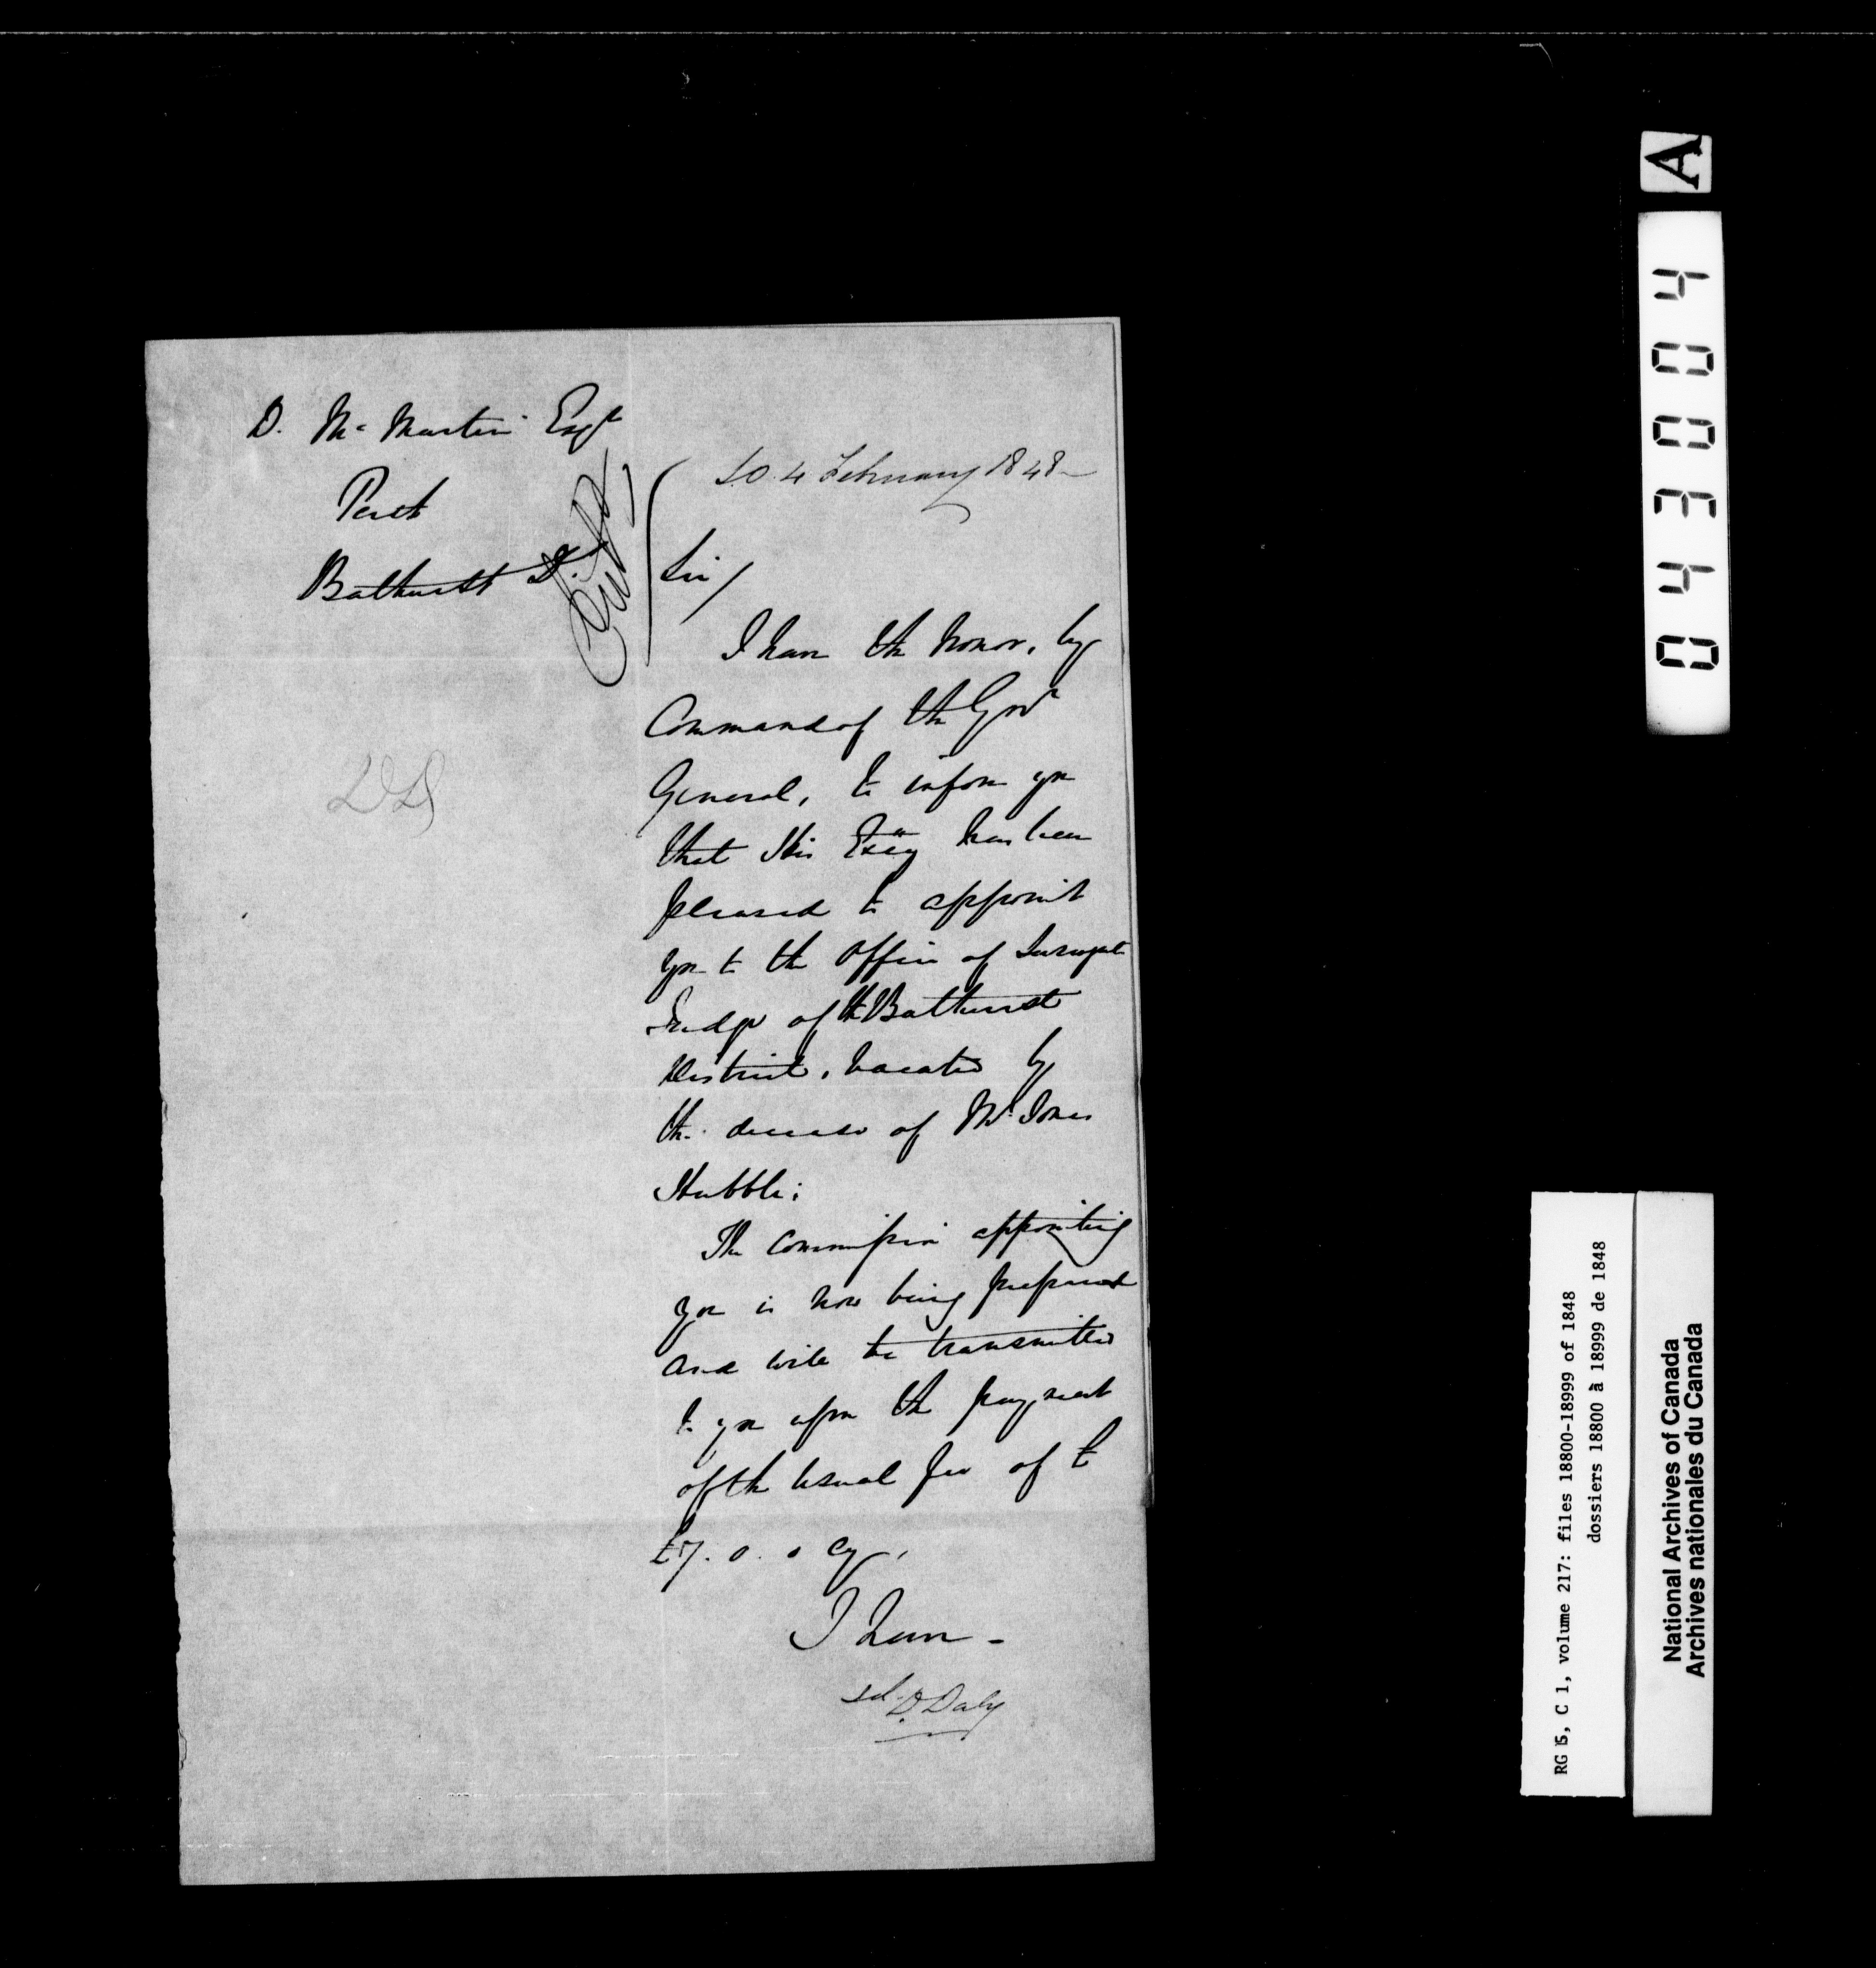 D. McMartin Esqr
Perth
Bathurst D.
S.O. 4 February 1848
Sir/
I have the honor, by
Command of the Govr
General, to inform you
that His Excy has been
pleased to appoint
you to the office of Surrogate
Judge of the Bathurst
District, vacated by
the decease of Mr Jones
Hubble;
The Commission appointing
you is now being prepared
and will be transmitted
to you upon the payment
of the usual fee of £
£7. 0. 0 Cy,
I have -
sd. D. Daly
A
043004
RG 5, C 1, volume 217: files 18800-18999 of 1848
dossiers 18800 à 18999 de 1848
National Archives of Canada
Archives nationales du Canada